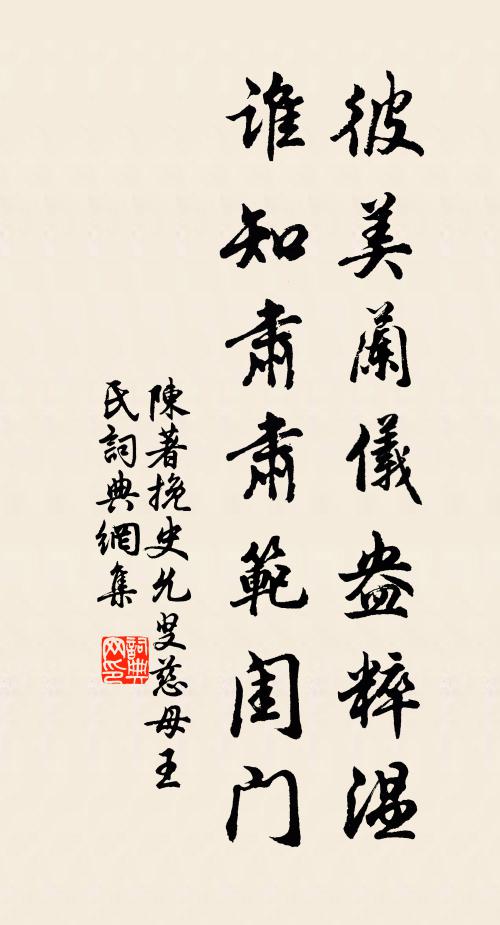 彼美蘭儀盎粹溫
誰知肅肅範閨門
陳著挽史允叟慈母王
氏詞典網集
詞典網印